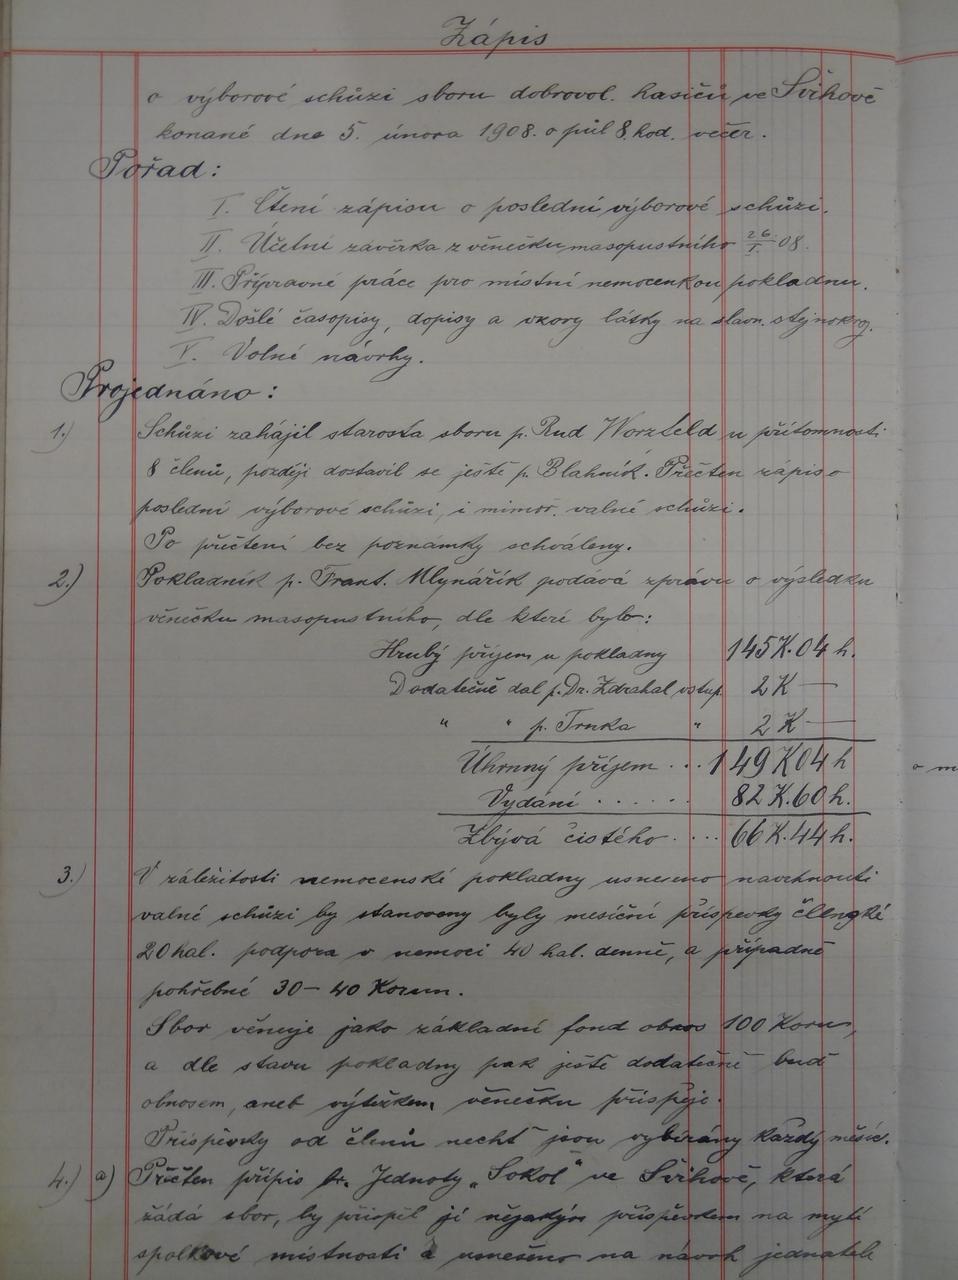 Zápis
o výborové schůzi sboru dobrovol. hasičů ve Švihově
konané dne 5. února 1908. o půl 8. hod. večer.
Pořad:
I. Čtení zápisu o poslední výborové schůzi.
II. Účetní závěrka z věnečku masopustního 26/I. 08.
III. Přípravné práce pro místní nemocenkou pokladnu.
IV. Došlé časopisy, dopisy a vzory látky na slavn. stejnokroj.
V. Volné návrhy.
Projednáno:
1.) Schůzi zahájil starosta sboru p. Rud Worzfeld u přítomnosti
8 členů, později dostavil se ještě p. Blahník. Přečten zápis o
poslední výborové schůzi, i mimoř. valné schůzi.
Po přečtení bez poznámky schváleny.
2.) Pokladník p. Frant. Mlynářík podává zprávu o výsledku
věnečku masopustního, dle které bylo:
Hrubý příjem u pokladny 145 K. 04 h.
Dodatečně dal p. Dr. Zdrahal vstup. 2 K —
" " p. Trnka " 2 K —
Úhrnný příjem ... 149 K 04 h
Vydání ...... 82 K. 60 h.
Zbývá čistého .... 66 K. 44 h.
o m
3.) V záležitosti nemocenské pokladny usneseno navrhnouti
valné schůzi by stanoveny byly mesíční příspěvky členské
20 hal. podpora v nemoci 40 hal. denně, a případně
pohřebné 30 – 40 Korun.
Sbor věnuje jako základní fond obnos 100 Korun,
a dle stavu pokladny pak ještě dodatečně buď
obnosem, aneb výtěžkem věnečku přispěje.
Příspěvky od členů nechť jsou vybírány každý měsíc.
4.) a) Přečten přípis tr. Jednoty „Sokol" ve Švihově, která
žádá sbor, by přispěl jí nějakým příspěvkem na mytí
spolkové místnosti a usneseno na návrh jednatele